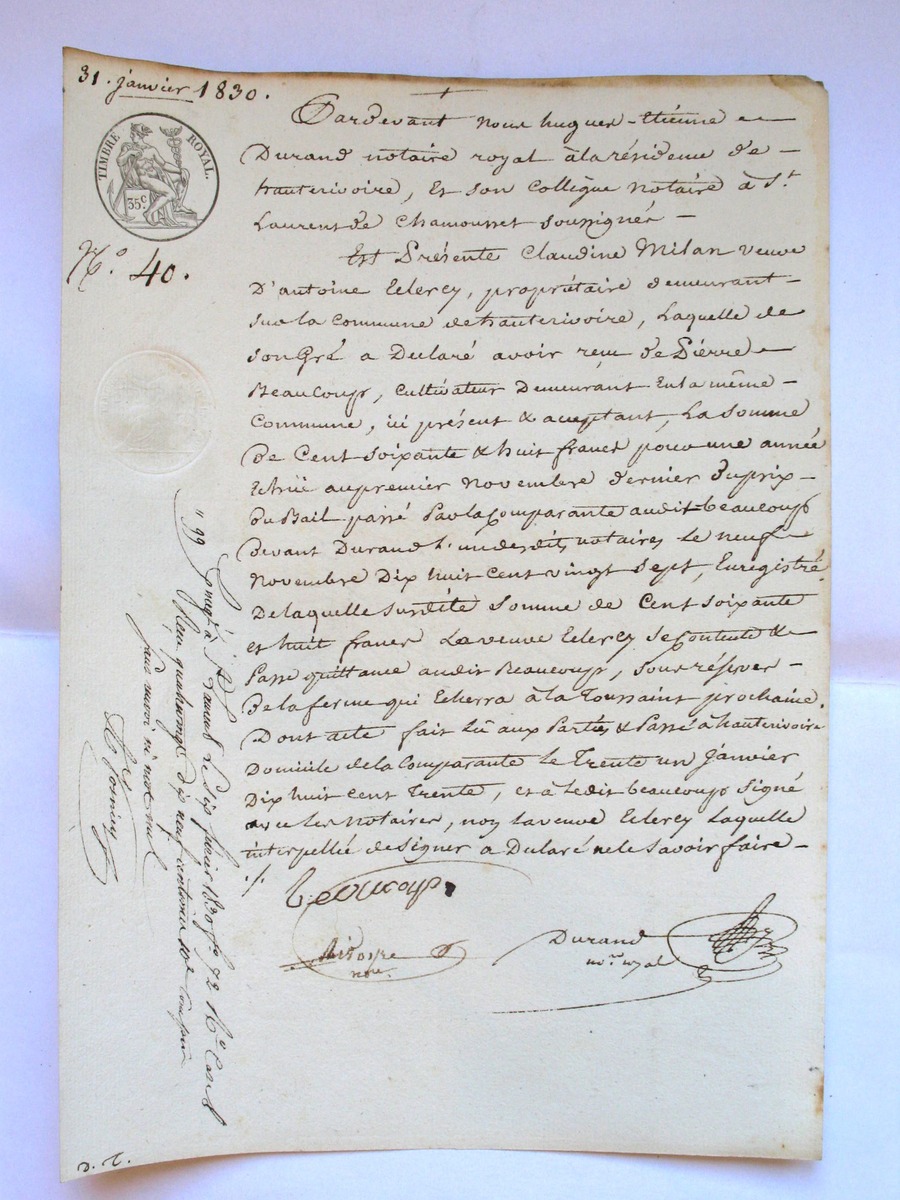 31. janvier 1830.
TIMBRE ROYAL.
35c.
N.o 40.
Pardevant Nous hugues-Etienne
Durand notaire royal à la résidence de
hauterivoire, Et son Collègue notaire à St.
Laurent de Chamousset soussignés
Est Présente Claudine Milan veuve
D'antoine Eclercy, propriétaire demeurant
sur la Commune de hauterivoire, Laquelle de
son Gré a Déclaré avoir reçu de Pierre
Beaucoup, Cultivateur Demeurant En la même
Commune, ici présent & aceptant, La somme
de Cent soixante & huit francs pour une année
Echüe au premier Novembre dernier du prix
du Bail passé Par la Comparante audit beaucoup
devant Durand l'un desdits notaires le neuf
Novembre Dix huit Cent vingt sept, Enregistré
De laquelle susdite somme de Cent soixante
et huit francs La veuve Eclercy se Contente &
Passe quittance audit Beaucoup, sous réserves
de la ferme qui Echerra à la Toussaint prochaine.
Dont acte fait Lû aux Parties & Passé à hauterivoire
Domicile de la Comparante le Trente un Janvier
Dix huit Cent Trente, et à Ledit beaucoup signé
avec les Notaires, non la veuve Eclercy Laquelle
interpellée de signer a Déclaré ne le savoir faire
Beoucoup
Durand
nre. royal
nore.
St Laurent le dix février 1830 fo. 72 Ro. Case
quatre vingt dix neuf centimes
D. L.